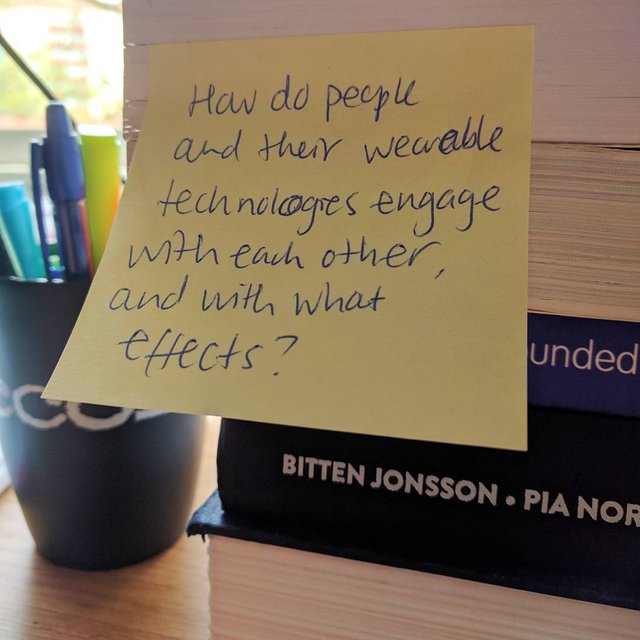 How do people
and their wearable
technologies engage
with each other,
and with what
effects?
unded
BITTEN JONSSON • PIA NOR